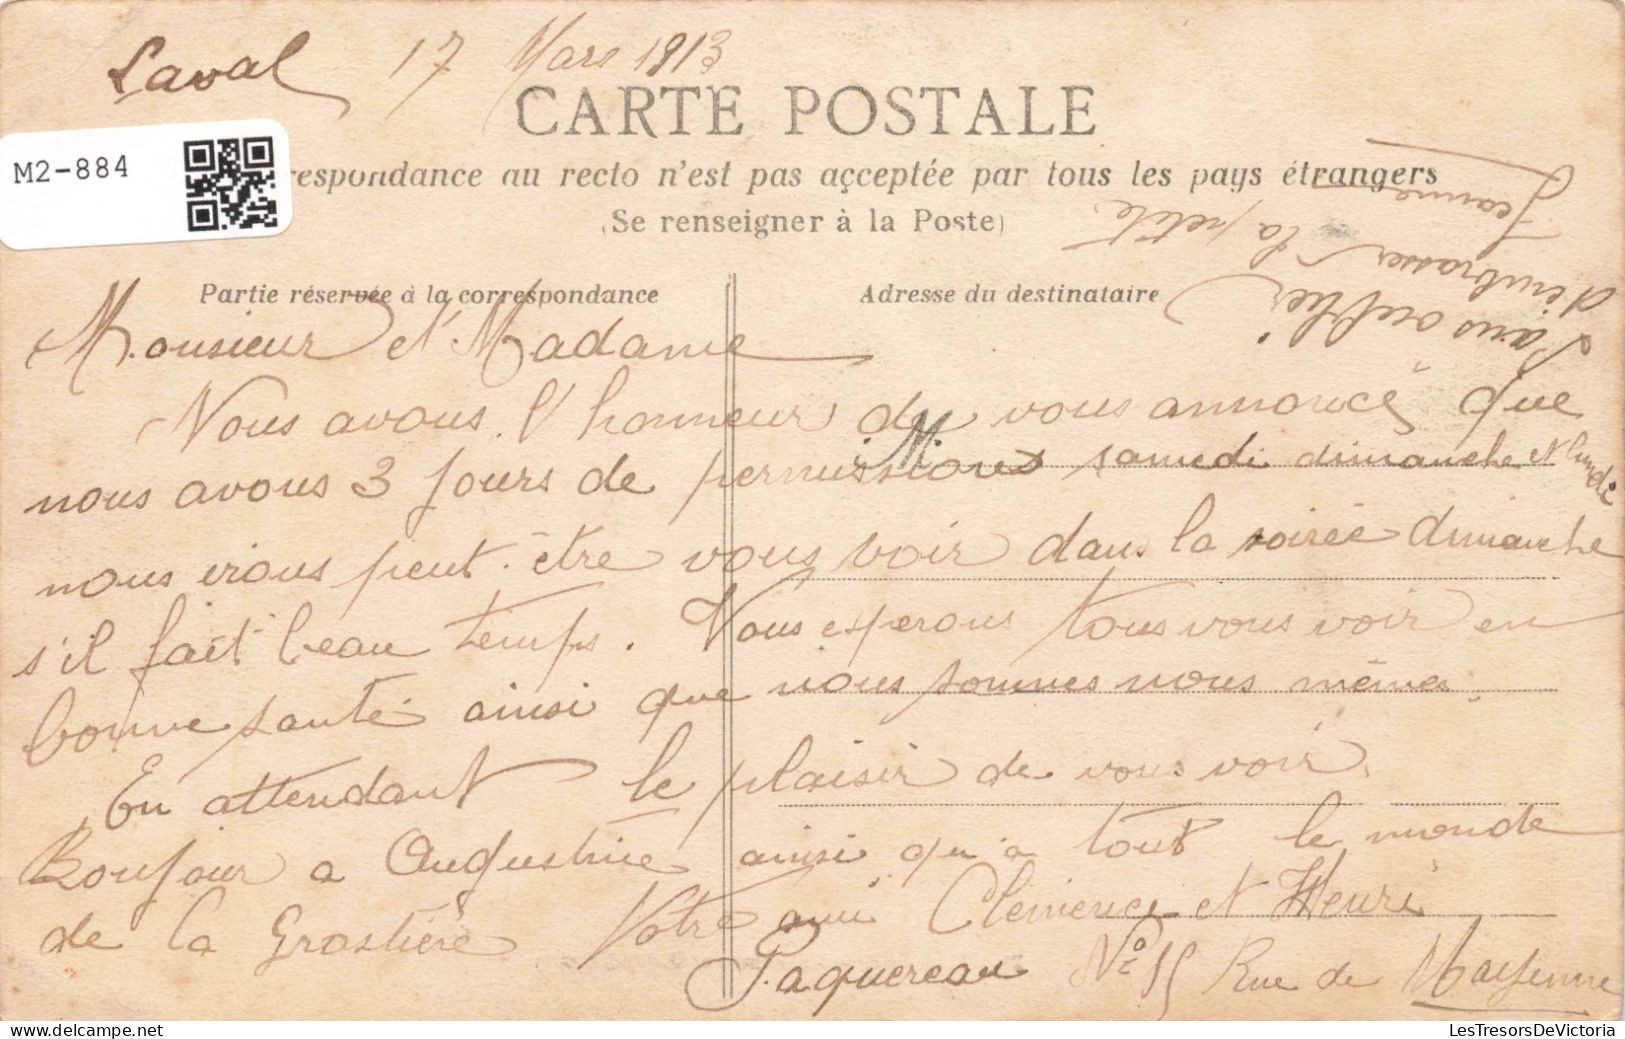 Laval 17 Mars 1913
CARTE POSTALE
M2-884
respondance au recto n'est pas acceptée par tous les pays étrangers
(Se renseigner à la Poste)
Partie réservée à la correspondance
Adresse du destinataire
Monsieur et Madame
Nous avons l'honneur de vous annoncé que
nous avons 3 jours de permissions samedi dimanche et lundi
nous irons peut-être vous voir dans la soirée dimanche
s'il fait beau temps. Nous esperons tous vous voir en
bonne santé ainsi que nous sommes nous mêmes.
En attendant le plaisir de vous voir.
Bonjour a Augustine ainsi qu'a tout le monde
de la Grostière Votre ami Clemence et Henri
Paquereau No 15 Rue de Mayenne
Sans oublier
d'embrasser la petite
Jeanne
LesTresorsDeVictoria.com